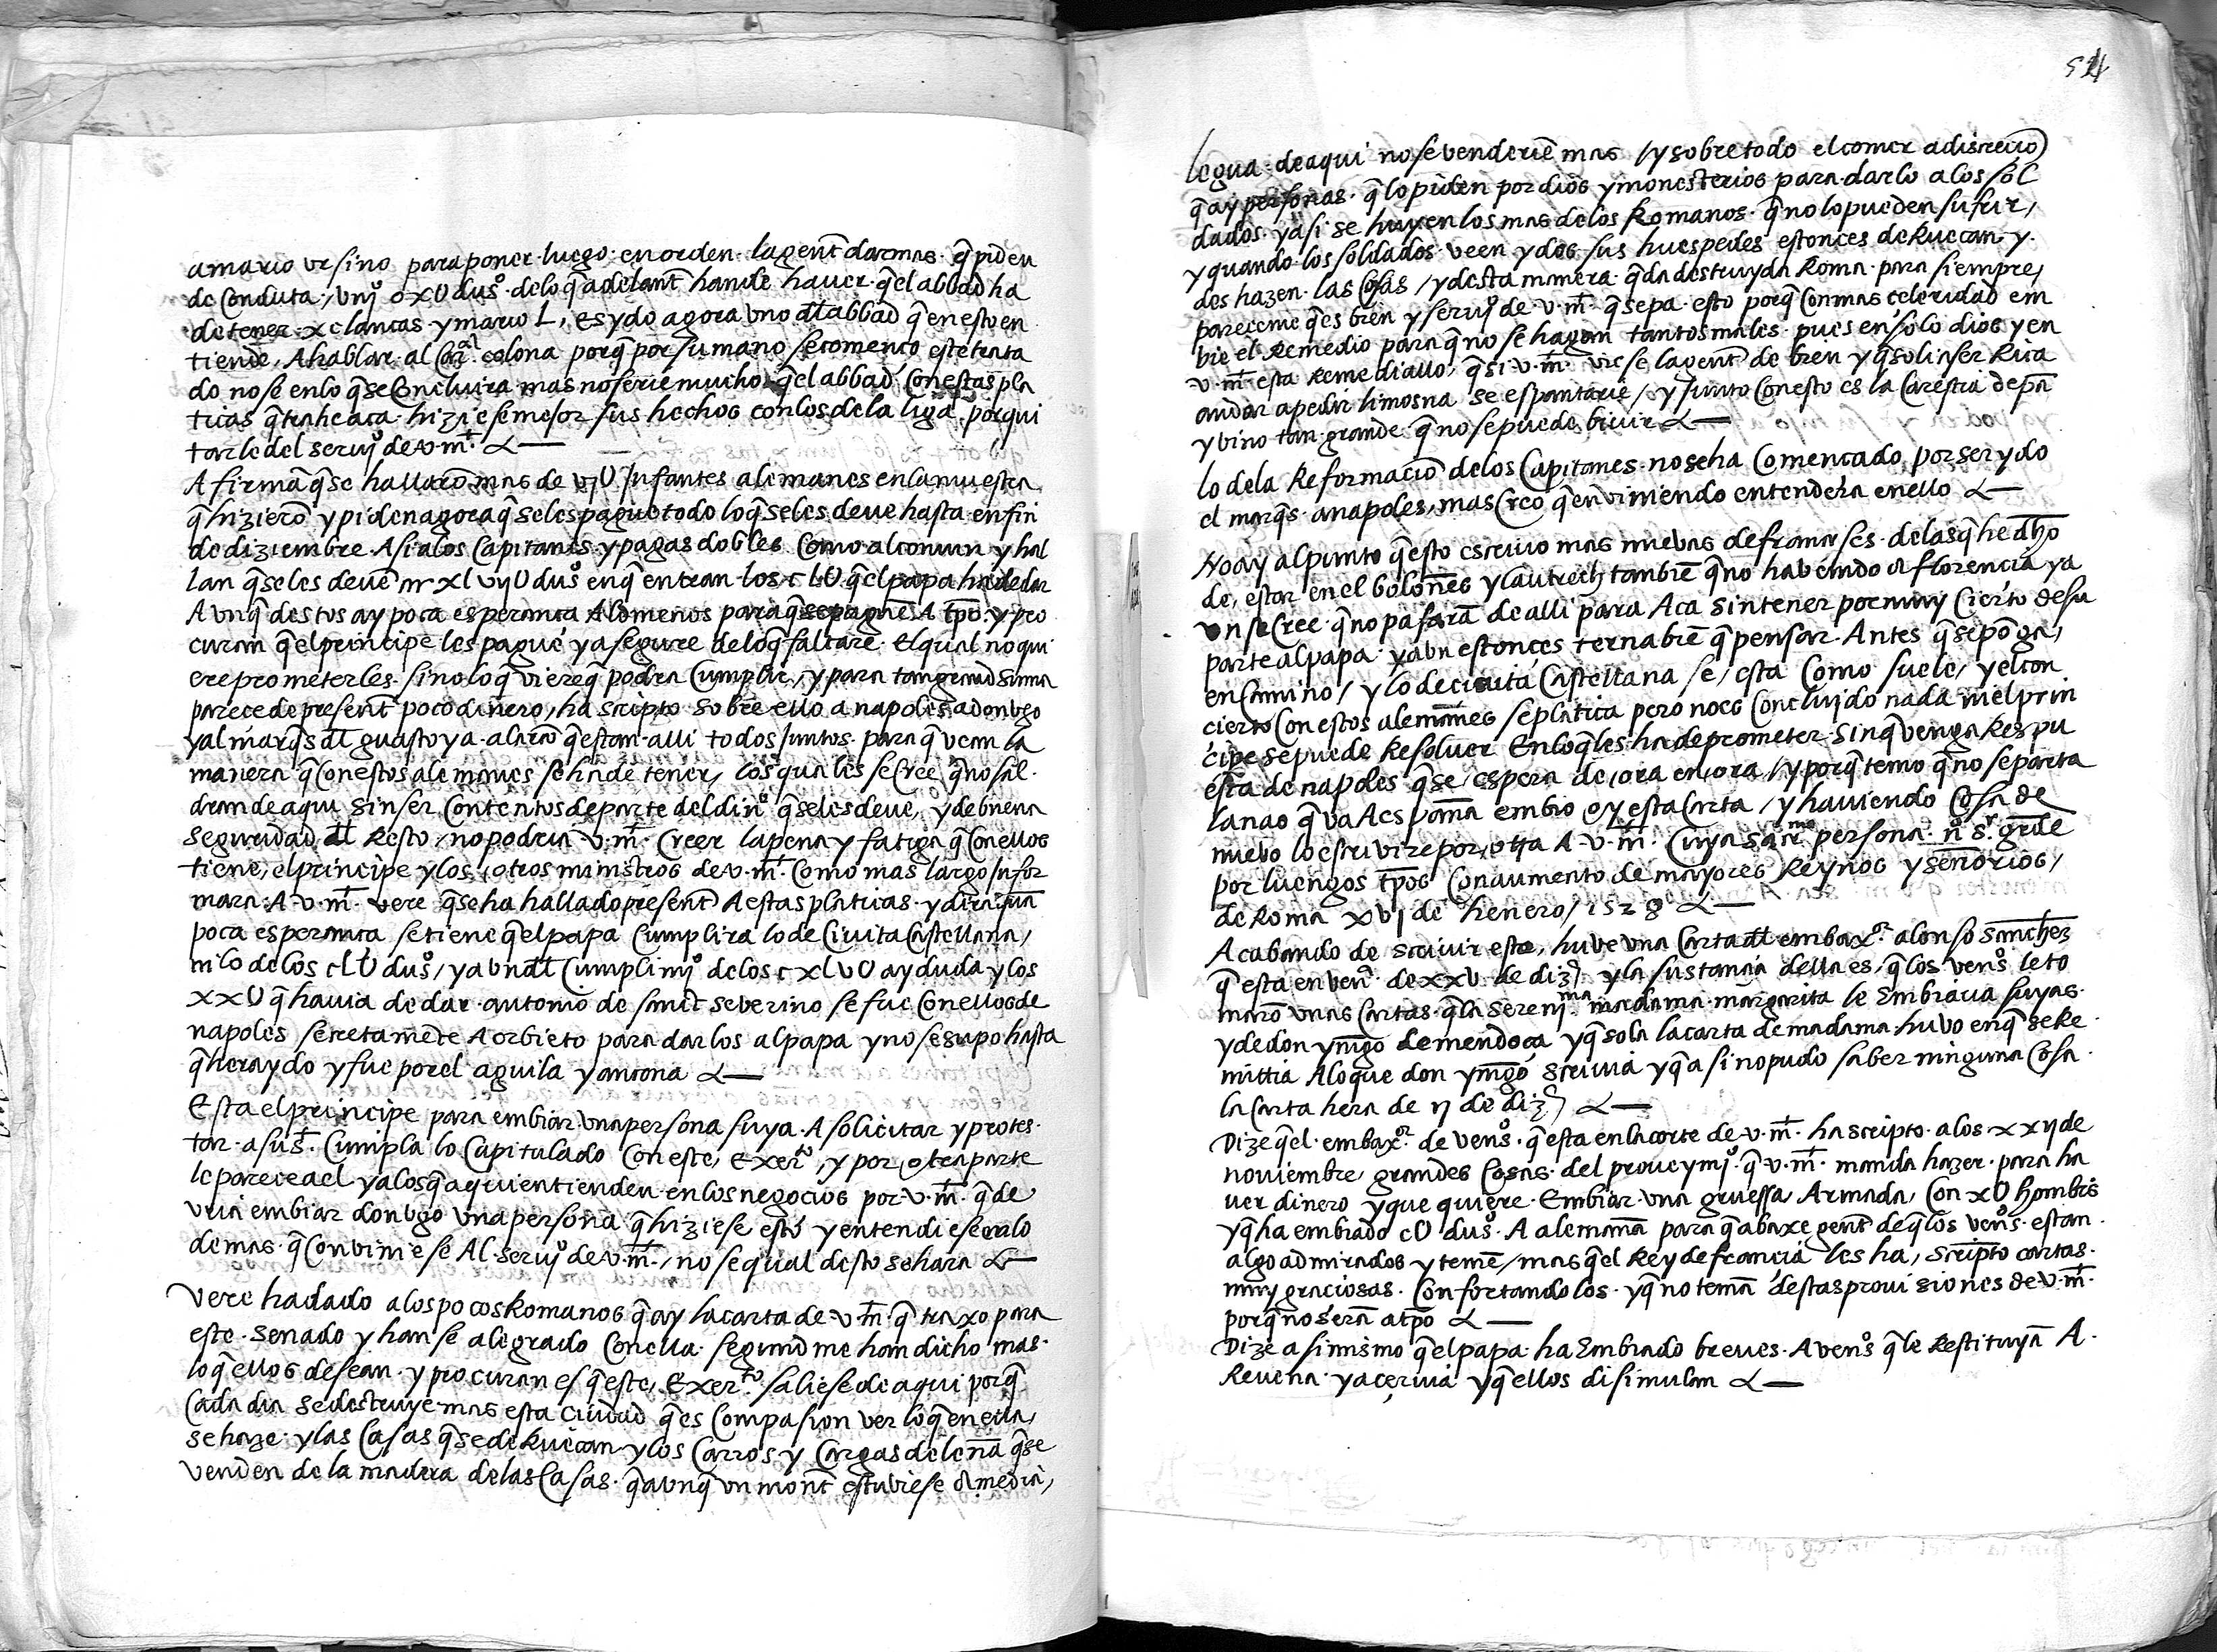 amario vrsino para poner luego en orden la gent̃ darmas q̃ piden
de Conduta, vııȷ̊ o x U dus̊ delo q̃ adelant̃ hande haver q̃el abbad ha
de tener xc lancas y mario L, es ydo agora vno dl̃ abbad q̃ en esto en
tiende, A hablar al Car.al colona porq̃ por su mano se comenco este trata
do no se en lo q̃ se Concluira mas no serie mucho q̃el abbad Con estas pla
ticas q̃ trahe aca hiziese mejor sus hechos con los de la liga por qui
tarle del seruȷ̊ de v. mt.
Afirmã q̃ se hallarõ mas de vȷU Infantes alemanes en la muestra
q̃ hizierõ y piden agora q̃ se les pague todo lo q̃ se les deve hasta en fin
de diziembre Asi a los Capitanes y pagas dobles Como al comun y hal
lan q̃ se les devẽ xl vıȷU dus̊ en q̃ entran los c LU q̃ el papa ha de dar
Avnq̃ destos ay poca esperanca Alomenos para q̃ se paguẽ A tp̃o y pro
curan q̃ el principe les pague y asegure delo q̃ faltare El qual no qui
ere prometerles sino lo q̃ viere q̃ podra Cumplir, y para tan grand suma
parece de present̃ poco dinero, ha scripto sobre ello a napoles a don vgo
y al marq̃s dl̃ guasto y a alarcõ q̃ estan alli todos juntos para q̃ vean la
manera q̃ Con estos alemanes se ha de tener, los quales se Cree q̃ no sal
dran de aqui sin ser Contentos de parte del din̊ q̃ se les deve, y de buena
seguridad dl̃ Resto, no podria v. mt. Creer la pena y fatiga q̃ Con ellos
tiene, el principe y los otros ministros de v. mt. Como mas largo Infor
mara A v. mt. vere q̃ se ha hallado present̃ A estas platicas y dira quã
poca esperanca se tiene q̃ el papa Cumplira lo de Civita Castellana,
ni lo de los cLU dus̊, y avn dl̃ Cumplimȷ̊ de los c xl vU ay duda y los
xxU q̃ havia de dar antonio de sanct severino se fue Con ellos de
napoles secretamẽte A orbieto para darlos al papa y no se supo hasta
q̃ hera ydo y fue por el aguila y ancona
Esta el principe para embiar vna persona suya A solicitar y protes
tar a su st. Cumpla lo Capitulado Con este, exerto, y por otra parte
le parece a el y a los q̃ aqui entienden en los negocios por v. mt. q̃ de
vria embiar don vgo vna persona q̃ hiziese esto y entendiese en lo
demas q̃ Conviniese Al seruȷ̊ de v. mt., no se qual desto se hara
Vere ha dado a los pocos Romanos q̃ ay la carta de v. mt. q̃ traxo para
este senado y han se alegrado Con ella segund me han dicho mas
lo q̃ ellos desean y procuran es q̃ este, Exerto saliese de aqui porq̃
Cada dia se destruye mas esta Ciudad q̃ es Compasion ver lo q̃ en ella
se haze y las Casas q̃ se deRuecan y los Carros y Cargas de leña q̃ se
venden de la madera de las Casas q̃ avnq̃ vn mont̃ estuviese a media,
54
legua de aqui no se venderiẽ mas / y sobre todo el comer a discreciõ
q̃ ay personas q̃ lo piden por dios y monesterios para darlo a los sol
dados y asi se huyen los mas de los Romanos q̃ no lo pueden sufrir,
y quando los soldados veen ydos sus huespedes estonces deRuecan y
des hazen las Cosas / y desta manera q̃da destruyda Roma para siempre,
pareceme q̃ es bien y seruȷ̊ de v. mt. q̃ sepa esto porq̃ Con mas celeridad em
bie el Remedio para q̃ no se hagan tantos males pues en solo dios y en
v. mt. esta Remediallo, q̃ si v. mt. viesse la gent̃ de bien y q̃ solia ser Rica
andar a pedir limosna se espantarie / y junto Con esto es la Carestia de pã
y vino tan grande q̃ no se puede bivir
lo dela Reformaciõ delos Capitanes no se ha Comencado por ser ydo
el marq̃s a napoles, mas Creo q̃ en viniendo entendera en ello
No ay al punto q̃ esto escrivo mas nuevas de franceses delas q̃ he dh̃o
de, estar en el boloñes y lautrech tambiẽ q̃ no habiendo a florencia ya
vn se Cree q̃ no pasarã de alli para Aca sin tener por muy Cierto de su
parte al papa y avn estonces terna biẽ q̃ pensar Antes q̃ se põga,
en Camino / y lo de civita Castellana se, esta Como suele, y el con
cierto Con estos alemanes se platica pero no es Concluydo nada ni el prin
cipe se puede Resolver En lo q̃ les ha de prometer sin q̃ venga Respu
esta de napoles q̃ se espera de ora en ora / y porq̃ temo q̃ no se parta
la nao q̃ va A esp̃aña embio oy esta Carta / y haviendo Cosa de
nuevo lo escrivire por, otra A v. mt. Cuya sacr.ma persona n̊ s.r g̃rde
por luengos tp̃os Con aumento de mayores Reynos y señorios,
de Roma xvȷ de henero / 1528
Acabando de scrivir esta, huve vna Carta dl̃ embax.or alonso sanchez
q̃ esta en ven.a de xxv de diz.e y la sustancia della es, q̃ los ven̊s le to
marõ vnas Cartas q̃ la serenȷ.ma madama margarita le Embiava suyas
y de don yñigo de mendoça y q̃ sola la carta de madama huvo en q̃ se Re
mittia A lo que don yñigo screvia y q̃ asi no pudo saber ninguna Cosa
la Carta hera de ıȷ de diz.e
Dize q̃el embax.or de ven̊s q̃ esta en la corte de v. mt. ha scripto a los xxıȷ de
noviembre, grandes Cosas del proveymȷ̊ q̃ v. mt. manda hazer para ha
ver dinero y que quiere Embiar vna gruessa Armada, Con xU hombres
y q̃ ha embiado cU dus̊ A alemaña para q̃ abaxe gent̃ de q̃ los ven̊s estan
algo admirados y temẽ / mas q̃ el Rey de francia les ha, scripto cartas
muy graciosas Confortandolos y q̃ no temã destas provisiones de v. mt.
porq̃ no serã a tp̃o
Dize asimismo q̃ el papa ha Embiado breves A ven̊s q̃ le Restituyã A
Revena y a cervia y q̃ ellos disimulan